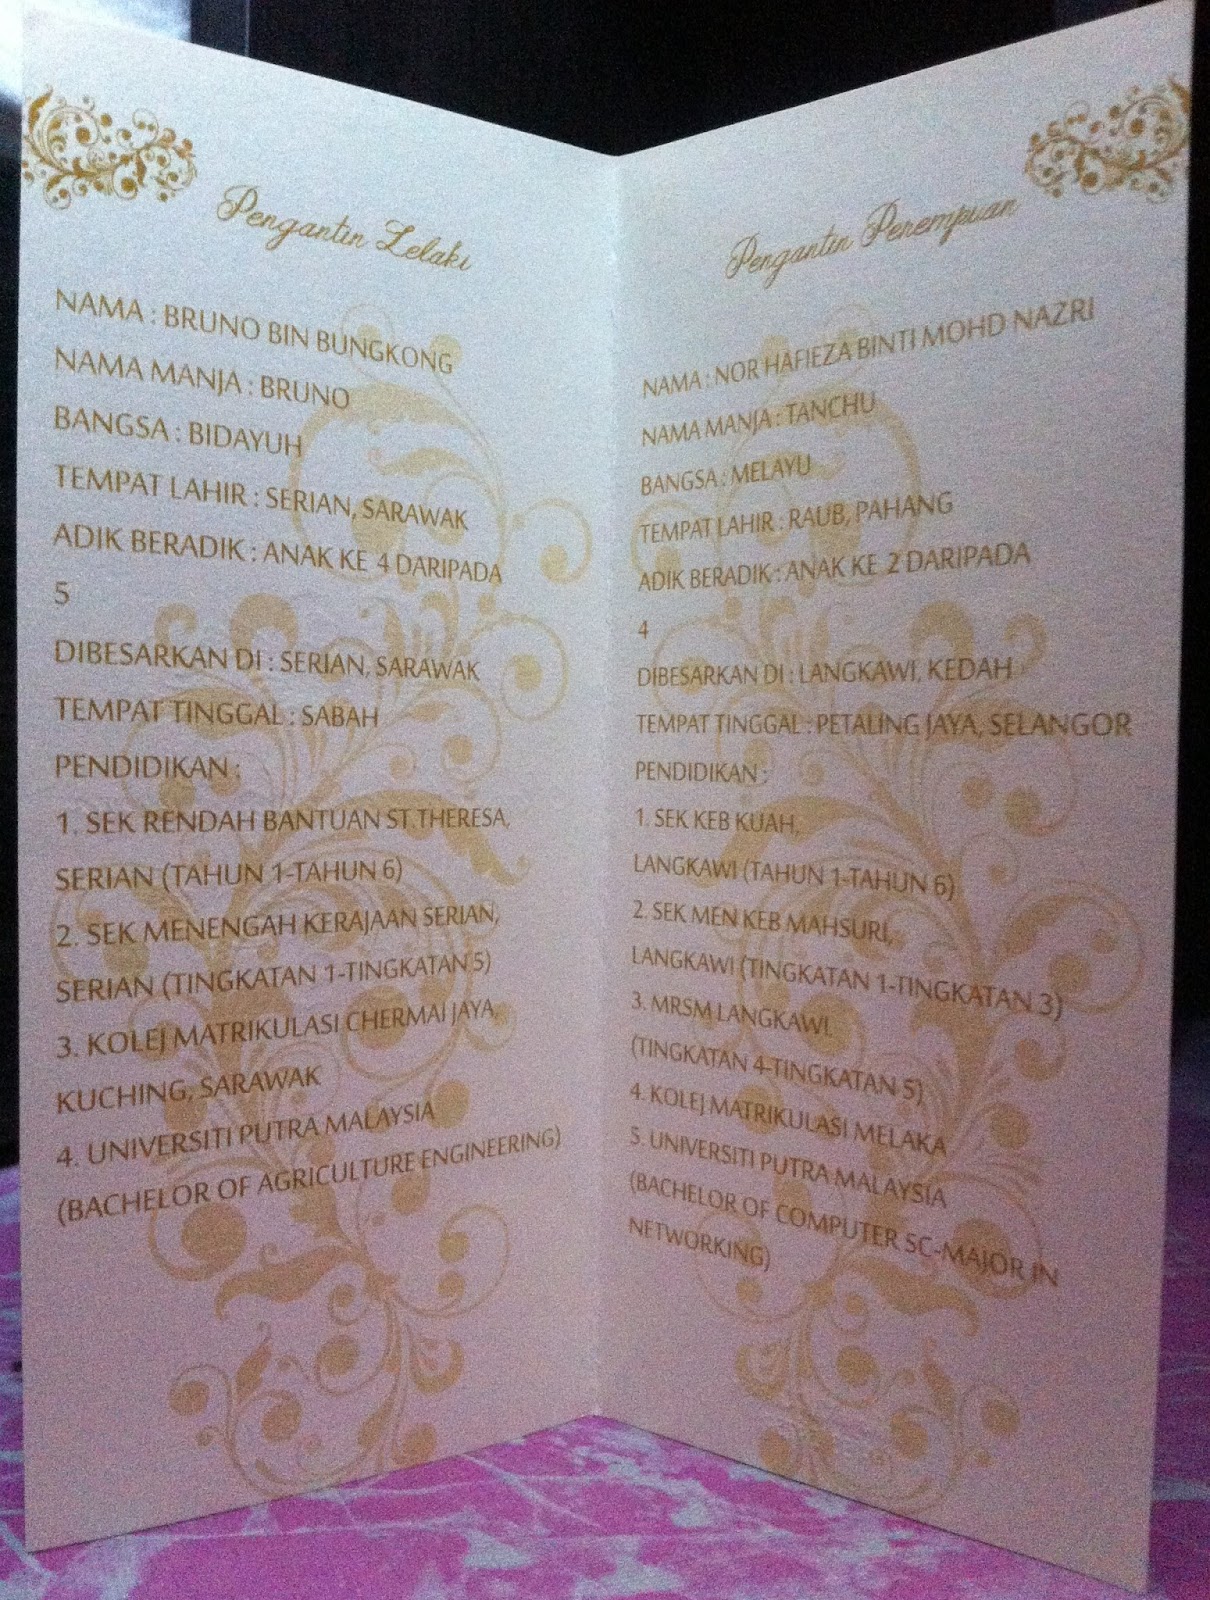 Pengantin Lelaki
NAMA : BRUNO BIN BUNGKONG
NAMA MANJA : BRUNO
BANGSA : BIDAYUH
TEMPAT LAHIR : SERIAN, SARAWAK
ADIK BERADIK : ANAK KE 4 DARIPADA
5
DIBESARKAN DI : SERIAN, SARAWAK
TEMPAT TINGGAL : SABAH
PENDIDIKAN :
1. SEK RENDAH BANTUAN ST.THERESA,
SERIAN (TAHUN 1-TAHUN 6)
2. SEK MENENGAH KERAJAAN SERIAN,
SERIAN (TINGKATAN 1-TINGKATAN 5)
3. KOLEJ MATRIKULASI CHERMAI JAYA,
KUCHING, SARAWAK
4. UNIVERSITI PUTRA MALAYSIA
(BACHELOR OF AGRICULTURE ENGINEERING)
Pengantin Perempuan
NAMA : NOR HAFIEZA BINTI MOHD NAZRI
NAMA MANJA : TANCHU
BANGSA : MELAYU
TEMPAT LAHIR : RAUB, PAHANG
ADIK BERADIK : ANAK KE 2 DARIPADA
4
DIBESARKAN DI : LANGKAWI, KEDAH
TEMPAT TINGGAL : PETALING JAYA, SELANGOR
PENDIDIKAN :
1. SEK KEB KUAH,
LANGKAWI (TAHUN 1-TAHUN 6)
2. SEK MEN KEB MAHSURI,
LANGKAWI (TINGKATAN 1-TINGKATAN 3)
3. MRSM LANGKAWI,
(TINGKATAN 4-TINGKATAN 5)
4. KOLEJ MATRIKULASI MELAKA
5. UNIVERSITI PUTRA MALAYSIA
(BACHELOR OF COMPUTER SC-MAJOR IN
NETWORKING)